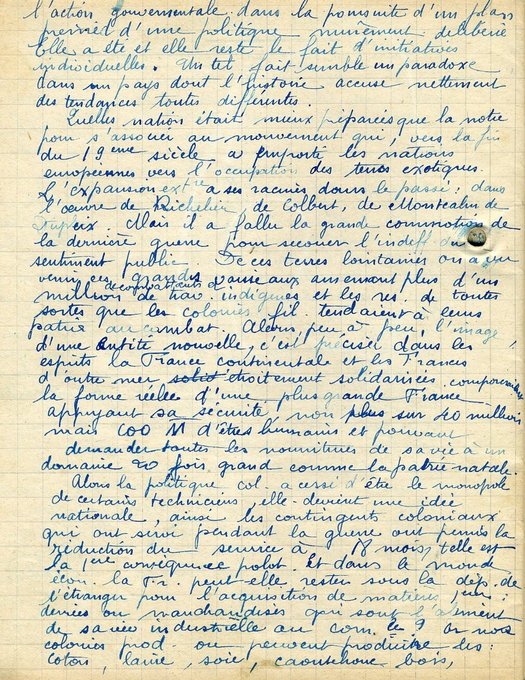 l'action gouvernementale dans la poursuite d'un plan
d'une politique mûrement délibéré
Elle a été et elle reste le fait d'initiatives
individuelles. Un tel fait semble un paradoxe
dans un pays dont l'histoire accuse nettement
des tendances toutes différentes.
Quelles nation était mieux préparées que la notre
pour s'associer au mouvement qui, vers la fin
du 19ème siècle a emporté les nations
européennes vers l'occupation des terres exotiques.
L'expansion a ses racines dans le passé: dans
l'oeuvre de Richelieu, de Colbert, de Montcalm de
Dupleix. Mais il a fallu la grande commotion de
la dernière guerre pour secouer l'indiff. du
sentiment public De ces terres lointaines on a vu
venir ces grands vaisseaux amenant plus d'un
million de combattants de trav. indigènes et les res. de toutes
sortes que les colonies fil. tendaient à leurs
patrie au combat. Alors, peu à peu, l'image
d'une entité nouvelle, c'est précisée dans les
esprits la France continentale et les Frances
d'outre mer étroitement solidarisées
la forme réelle d'une plus grande France
appuyant sa sécurité non plus sur 40 millions
mais 100 M d'êtres humains et pouvant
demander toutes les nourritures de sa vie à un
domaine 20 fois grand comme la patrie natale.
Alors la politique col. a cessé d'être le monopole
de certains techniciens, elle devient une idée
nationale, ainsi les contingents coloniaux
qui ont servi pendant la guerre ont permis la
réduction du service à 18 mois, telle est
la 1ère conséquence Et dans le monde
écon. la Fr. peut-elle rester sous la dép. de
l'étranger pour l'acquisition de matières
denrées ou marchandises qui sont l'aliment
de sa vie industrielle au com. or nos
colonies prod. ou peuvent produire les:
coton, laine, soie, caoutchouc bois,